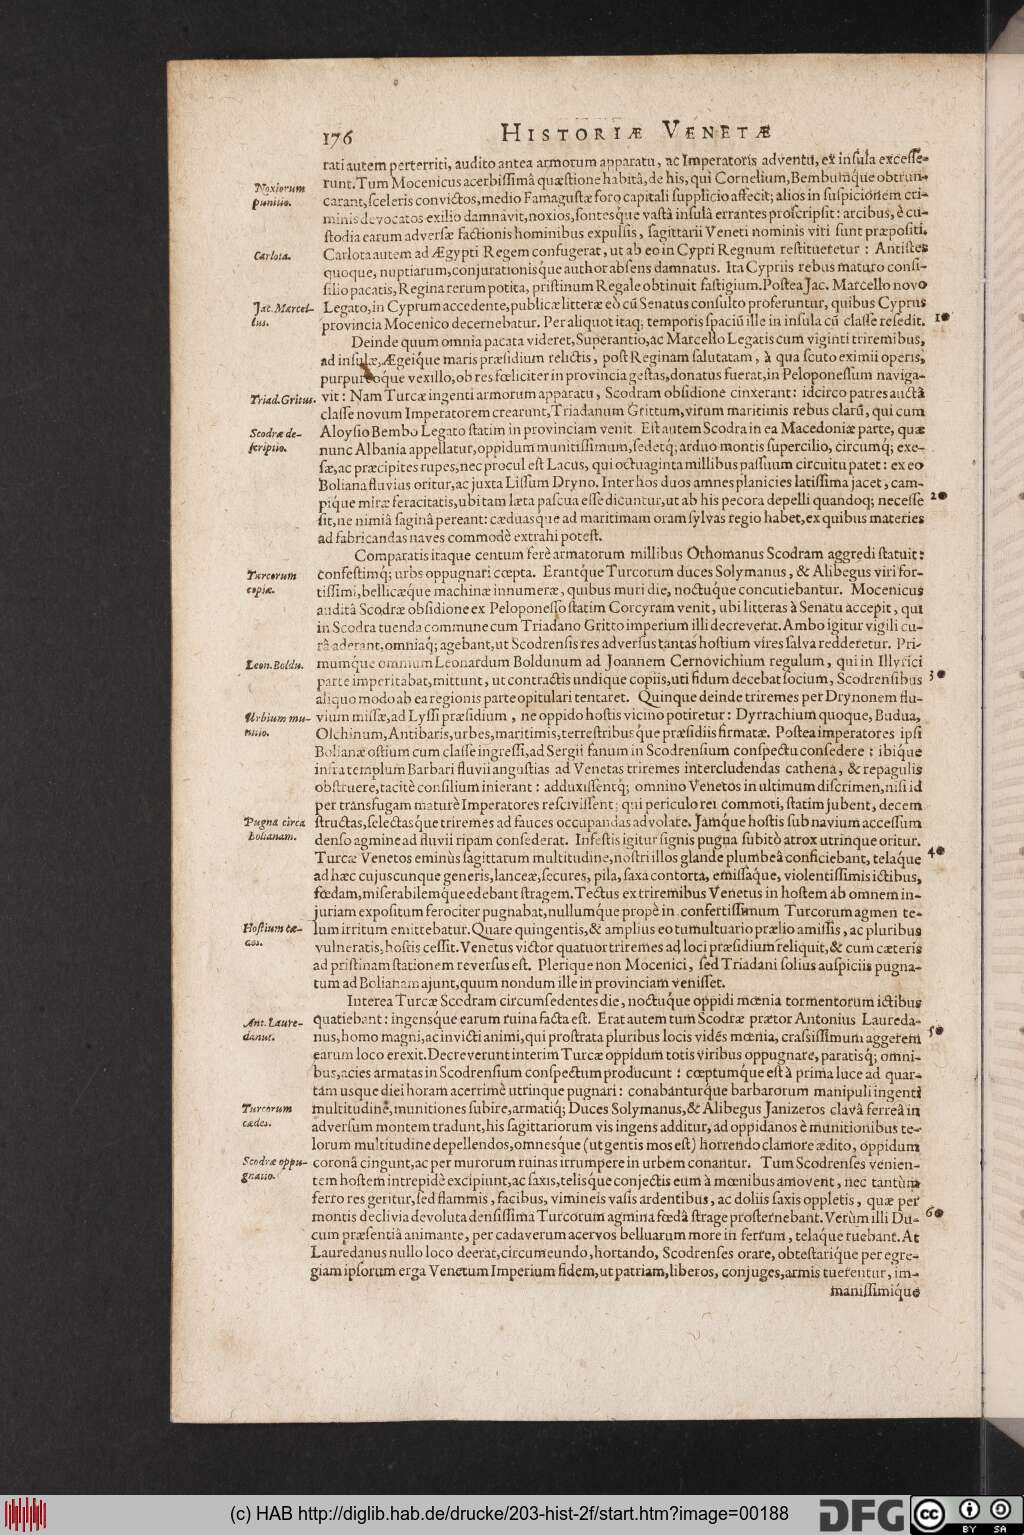 176 HISTORIÆ VENETÆ
rati autem perterriti, audito antea armorum apparatu, ac Imperatoris adventu, ex insula excesse-
Noxiorum punitio.
runt. Tum Mocenicus acerbissimâ quæstione habitâ, de his, qui Cornelium, Bembumq́ue obtrun-
carant, sceleris convictos, medio Famagustæ foro capitali supplicio affecit; alios in suspicionem cri-
minis devocatos exilio damnavit, noxios, sontesque vastâ insulâ errantes proscripsit: arcibus, è cu-
stodia earum adversæ factionis hominibus expulsis, sagittarii Veneti nominis viri sunt præpositi.
Carlota.
Carlota autem ad Ægypti Regem confugerat, ut ab eo in Cypri Regnum restitueretur: Antistes
quoque, nuptiarum, conjurationisq́ue author absens damnatus. Ita Cypriis rebus maturo consi-
silio pacatis, Regina rerum potita, pristinum Regale obtinuit fastigium. Postea Jac. Marcello novo
Jac. Marcel-
lus.
Legato, in Cyprum accedente, publicæ litteræ eò cũ Senatus consulto proferuntur, quibus Cyprus
provincia Mocenico decernebatur. Per aliquot itaq; temporis spaciũ ille in insula cũ classe resedit. 10
Deinde quum omnia pacata videret, Superantio, ac Marcello Legatis cum viginti triremibus,
ad insulæ, Ægeiq́ue maris præsidium relictis, post Reginam salutatam, à qua scuto eximii operis,
purpureoq́ue vexillo, ob res fœliciter in provincia gestas, donatus fuerat, in Peloponessum naviga-
Triad. Gritus.
vit: Nam Turcæ ingenti armorum apparatu, Scodram obsidione cinxerant: idcirco patres auctâ
classe novum Imperatorem crearunt, Triadanum Grittum, virum maritimis rebus clarũ, qui cum
Scodræ de-
scriptio.
Aloysio Bembo Legato statim in provinciam venit. Est autem Scodra in ea Macedoniæ parte, quæ
nunc Albania appellatur, oppidum munitissimum, sedetq; arduo montis supercilio, circumq; exe-
sæ, ac præcipites rupes, nec procul est Lacus, qui octuaginta millibus passuum circuitu patet: ex eo
Boliana fluvius oritur, ac juxta Lissum Dryno. Inter hos duos amnes planicies latissima jacet, cam-
piq́ue miræ feracitatis, ubi tam læta pascua esse dicuntur, ut ab his pecora depelli quandoq; necesse 20
sit, ne nimiâ saginâ pereant: cæduasque ad maritimam oram sylvas regio habet, ex quibus materies
ad fabricandas naves commodè extrahi potest.
Comparatis itaque centum ferè armatorum millibus Othomanus Scodram aggredi statuit:
Turcorum
copiæ.
confestimq; urbs oppugnari cœpta. Erantq́ue Turcorum duces Solymanus, & Alibegus viri for-
tissimi, bellicæque machinæ innumeræ, quibus muri die, noctuq́ue concutiebantur. Mocenicus
auditâ Scodræ obsidione ex Peloponesso statim Corcyram venit, ubi litteras à Senatu accepit, qui
in Scodra tuenda commune cum Triadano Gritto imperium illi decreverat. Ambo igitur vigili cu-
râ aderant, omniaq; agebant, ut Scodrensis res adversus tantas hostium vires salva redderetur. Pri-
Leon. Boldu.
mumq́ue omnium Leonardum Boldunum ad Joannem Cernovichium regulum, qui in Illyrici
parte imperitabat, mittunt, ut contractis undique copiis, uti fidum decebat socium, Scodrensibus 30
aliquo modo ab ea regionis parte opitulari tentaret. Quinque deinde triremes per Drynonem flu-
Urbium mu-
nitio.
vium missæ, ad Lyssi præsidium, ne oppido hostis vicino potiretur: Dyrrachium quoque, Budua,
Olchinum, Antibaris, urbes, maritimis, terrestribusq́ue præsidiis firmatæ. Postea imperatores ipsi
Bolianæ ostium cum classe ingressi, ad Sergii fanum in Scodrensium conspectu consedere: ibiq́ue
infra templum Barbari fluvii angustias ad Venetas triremes intercludendas cathena, & repagulis
obstruere, tacitè consilium inierant: adduxissentq; omnino Venetos in ultimum discrimen, nisi id
per transfugam maturè Imperatores rescivissent; qui periculo rei commoti, statim jubent, decem
Pugna circa
Bolianam.
structas, selectasq́ue triremes ad fauces occupandas advolare. Jamque hostis sub navium accessum
denso agmine ad fluvii ripam consederat. Infestis igitur signis pugna subitò atrox utrinque oritur.
Turcæ Venetos eminùs sagittarum multitudine, nostri illos glande plumbeâ conficiebant, telaq́ue 40
ad hæc cujuscunque generis, lanceæ, secures, pila, saxa contorta, emissaq́ue, violentissimis ictibus,
fœdam, miserabilemque edebant stragem. Tectus ex triremibus Venetus in hostem ab omnem in-
juriam expositum ferociter pugnabat, nullumq́ue propè in confertissimum Turcorum agmen te-
Hostium cæ-
des.
lum irritum emittebatur. Quare quingentis, & amplius eo tumultuario prælio amissis, ac pluribus
vulneratis, hostis cessit. Venetus victor quatuor triremes ad loci præsidium reliquit, & cum cæteris
ad pristinam stationem reversus est. Plerique non Mocenici, sed Triadani solius auspiciis pugna-
tum ad Bolianam ajunt, quum nondum ille in provinciam venisset.
Interea Turcæ Scodram circumsedentes die, noctuq́ue oppidi mœnia tormentorum ictibus
Ant. Laure-
danus.
quatiebant: ingensq́ue earum ruina facta est. Erat autem tum Scodræ prætor Antonius Laureda-
nus, homo magni, ac invicti animi, qui prostrata pluribus locis vidés mœnia, crassissimum aggerem 50
earum loco erexit. Decreverunt interim Turcæ oppidum totis viribus oppugnare, paratisq; omni-
bus, acies armatas in Scodrensium conspectum producunt: cœptumq́ue est à prima luce ad quar-
tam usque diei horam acerrimè utrinque pugnari: conabanturq́ue barbarorum manipuli ingenti
Turcorum
cædes.
multitudinẽ, munitiones subire, armatiq; Duces Solymanus, & Alibegus Janizeros clavâ ferreâ in
adversum montem tradunt, his sagittariorum vis ingens additur, ad oppidanos è munitionibus te-
lorum multitudine depellendos, omnesque (ut gentis mos est) horrendo clamore ædito, oppidum
Scodræ oppu-
gnatio.
coronâ cingunt, ac per murorum ruinas irrumpere in urbem conantur. Tum Scodrenses venien-
tem hostem intrepidè excipiunt, ac saxis, telisque conjectis eum à mœnibus amovent, nec tantùm
ferro res geritur, sed flammis, facibus, vimineis vasis ardentibus, ac doliis saxis oppletis, quæ per
montis declivia devoluta densissima Turcorum agmina fœdâ strage prosternebant. Verùm illi Du- 60
cum præsentiâ animante, per cadaverum acervos belluarum more in ferrum, telaque ruebant. At
Lauredanus nullo loco deerat, circumeundo, hortando, Scodrenses orare, obtestariq́ue per egre-
giam ipsorum erga Venetum Imperium fidem, ut patriam, liberos, conjuges, armis tuerentur, im-
manissimiq́ue
(c) HAB http://diglib.hab.de/drucke/203-hist-2f/start.htm?image=00188
DFG
cc BY SA